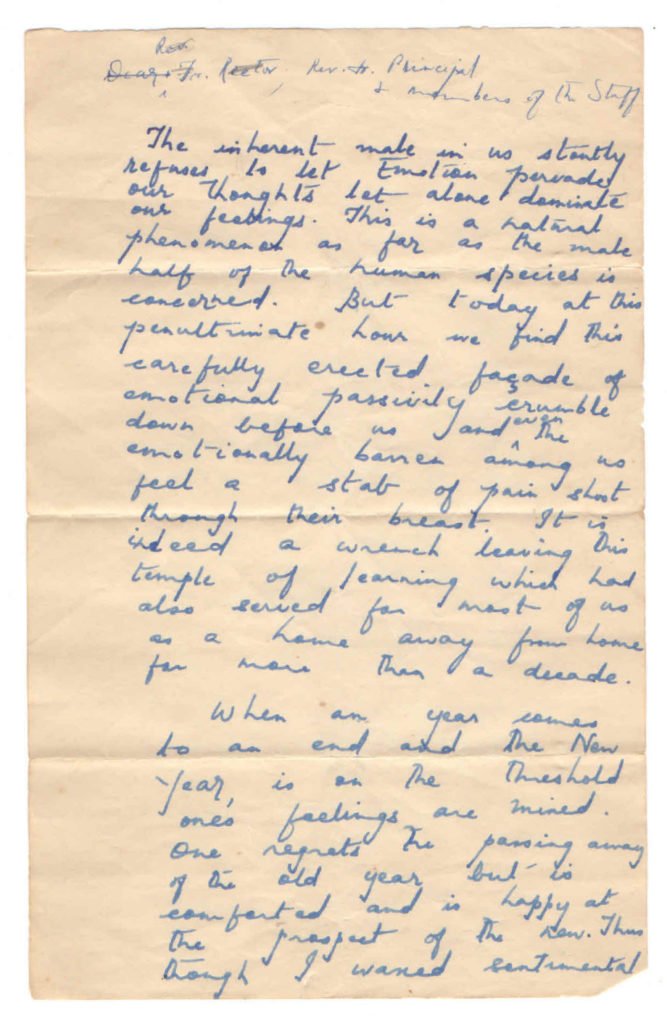 Rev
Dear Fr. Rector, Rev. Fr. Principal
& members of the Staff
The inherent male in us stoutly
refuses to let Emotion pervade
our thoughts let alone dominate
our feelings. This is a natural
phenomenon as far as the male
half of the human species is
concerned. But today at this
penultimate hour we find this
carefully erected façade of
emotional passivity crumble
down before us and even the
emotionally barren among us
feel a stab of pain shoot
through their breast. It is
indeed a wrench leaving this
temple of learning which had
also served for most of us
as a home away from home
for more than a decade.
When an year comes
to an end and the New
Year, is on the threshold
one's feelings are mixed.
One regrets the passing away
of the old year but is
comforted and is happy at
the prospect of the new. Thus
though I waxed sentimental